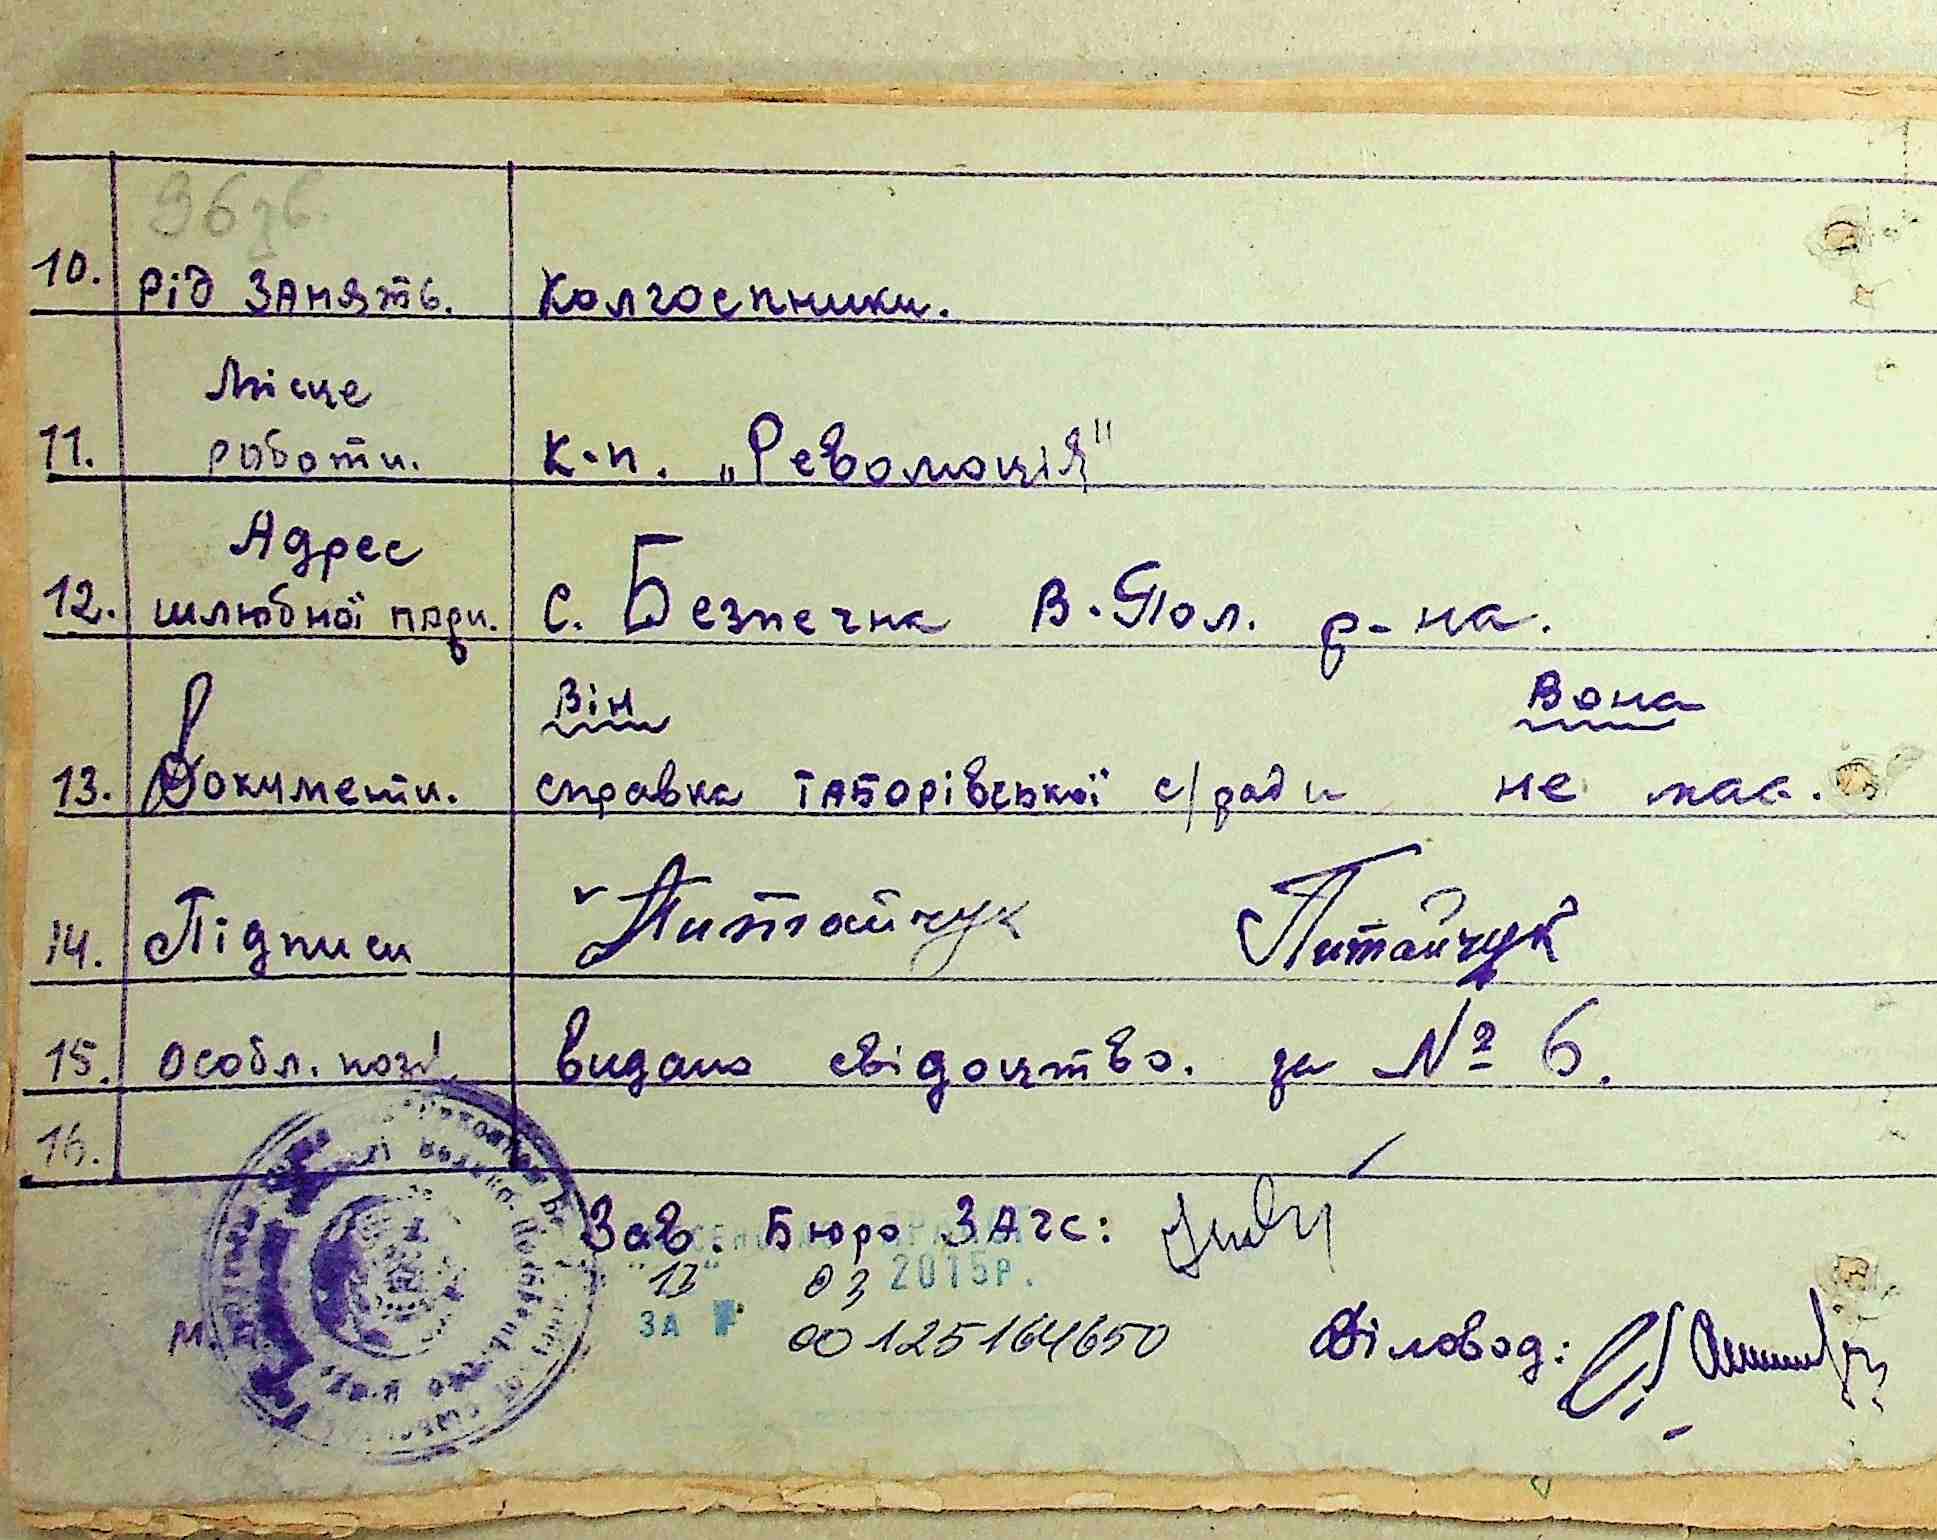 96зв.
10. Рід занять. Колгоспники.
Місце
11. роботи. к-п. „Революція"
Адрес
12. шлюбної пари. с. Безпечна В-Пол. р-на.
Він Вона
13. Документи. справка Таборівської с/ради не має.
14. Підписи Питайчук Питайчук
15. Особл. позн. видано свідоцтво. за № 6.
16.
Зав. Бюро ЗАГС:
"13" 03 2015р.
М.
ЗА № 00125164650
Діловод: